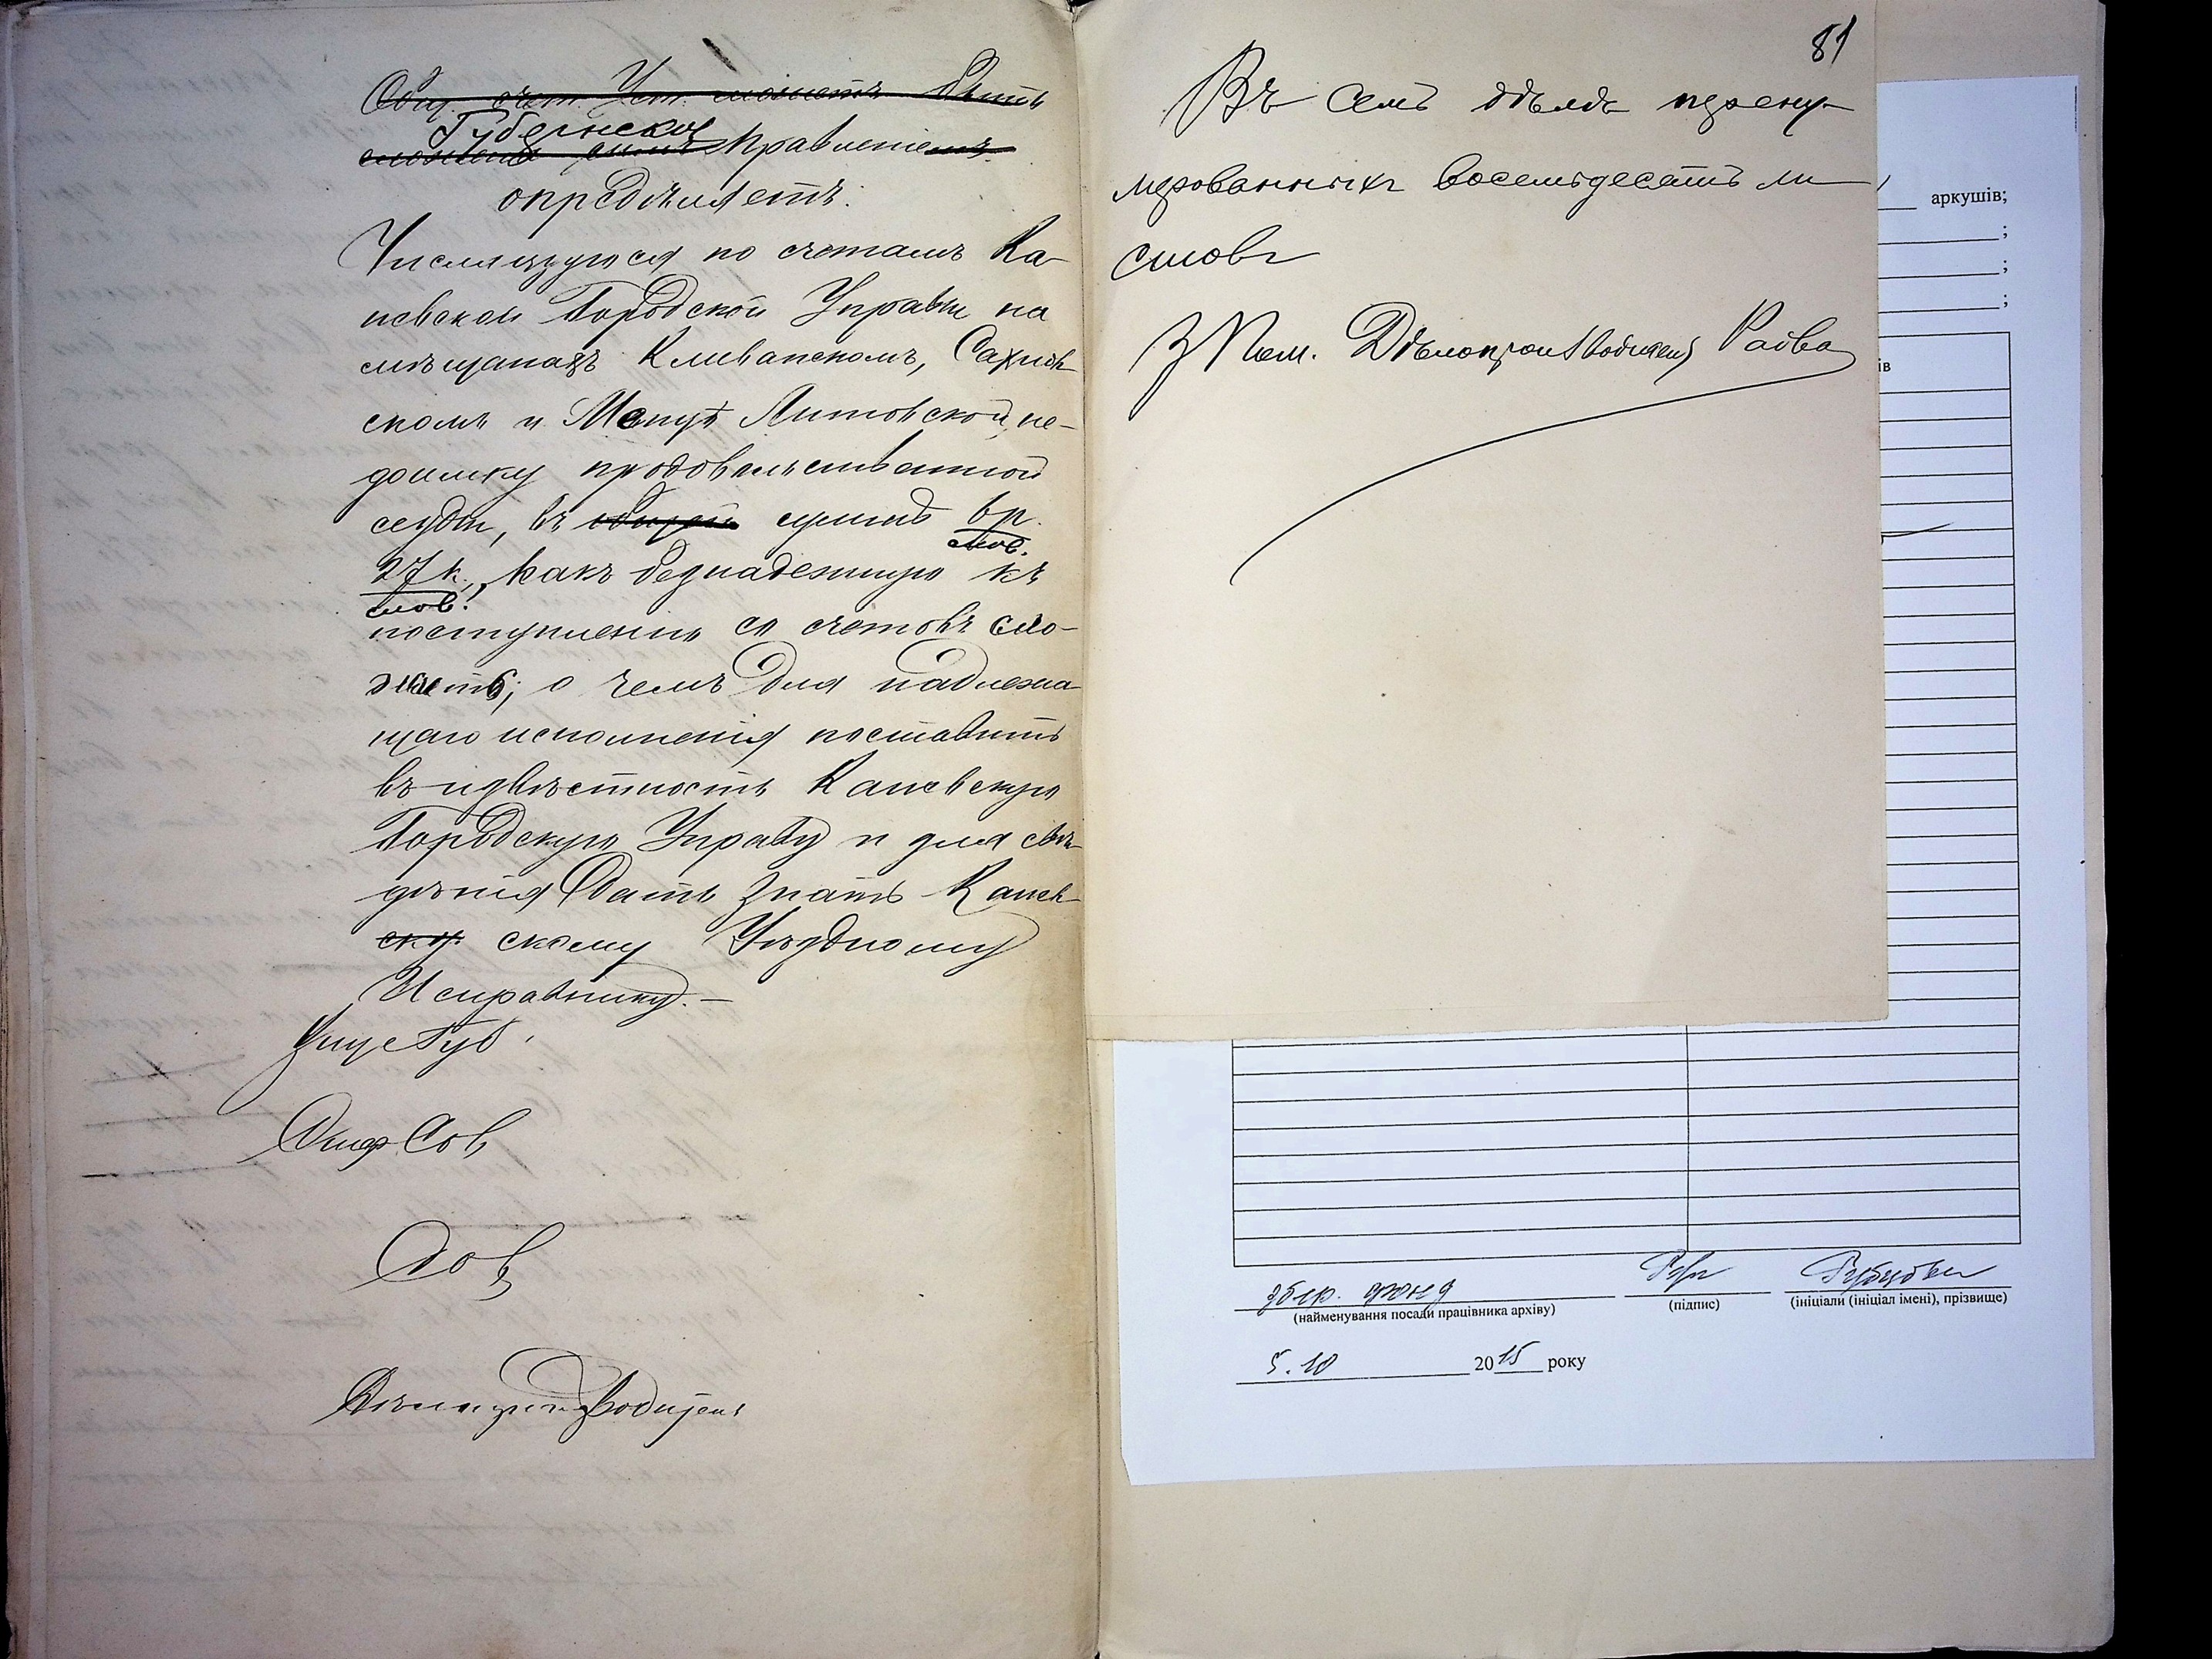 Общ. счет. Уст. можетъ быть
Губернское
сложена симъ Правленіемъ
опредѣляетъ:
Числящуюся по счетамъ Ка-
невской Городской Управы на
мѣщанахъ Кливанскомъ, Сахнов-
скомъ и Литовской, не-
доимку продовольственной
ссуды, въ общей суммѣ 6 р.
27 к., какъ безнадежную къ
поступленію со счетовъ сло-
жить; о чемъ для надлежа-
щаго исполненія поставить
въ извѣстность Каневскую
Городскую Управу и для свѣ-
дѣнія дать знать Канев-
ску скому Уѣздному
Исправнику. –
Вице Губ.
Сов
Сов
Дѣлопроизводитель
81
Въ семъ дѣлѣ перену-
мерованныхъ восемьдесятъ ли-
стовъ
З Пом. Дѣлопроизводителя
аркушів;
;
;
;
ів
збер. фонд
(найменування посади працівника архіву)
(підпис)
Рубцова
(ініціали (ініціал імені), прізвище)
5.10 2015 року